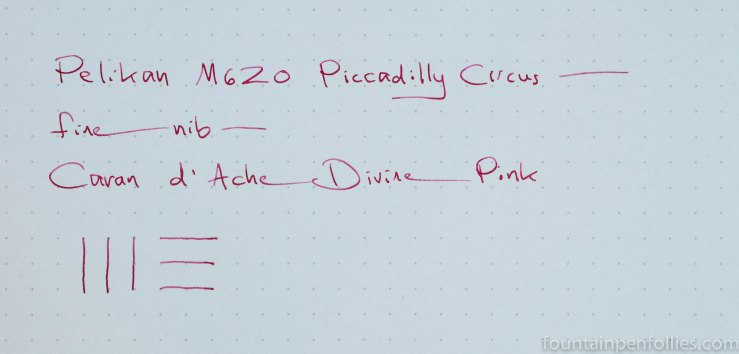 Pelikan M620 Piccadilly Circus —
fine — nib —
Caran d'Ache Divine Pink
fountainpenfollies.com